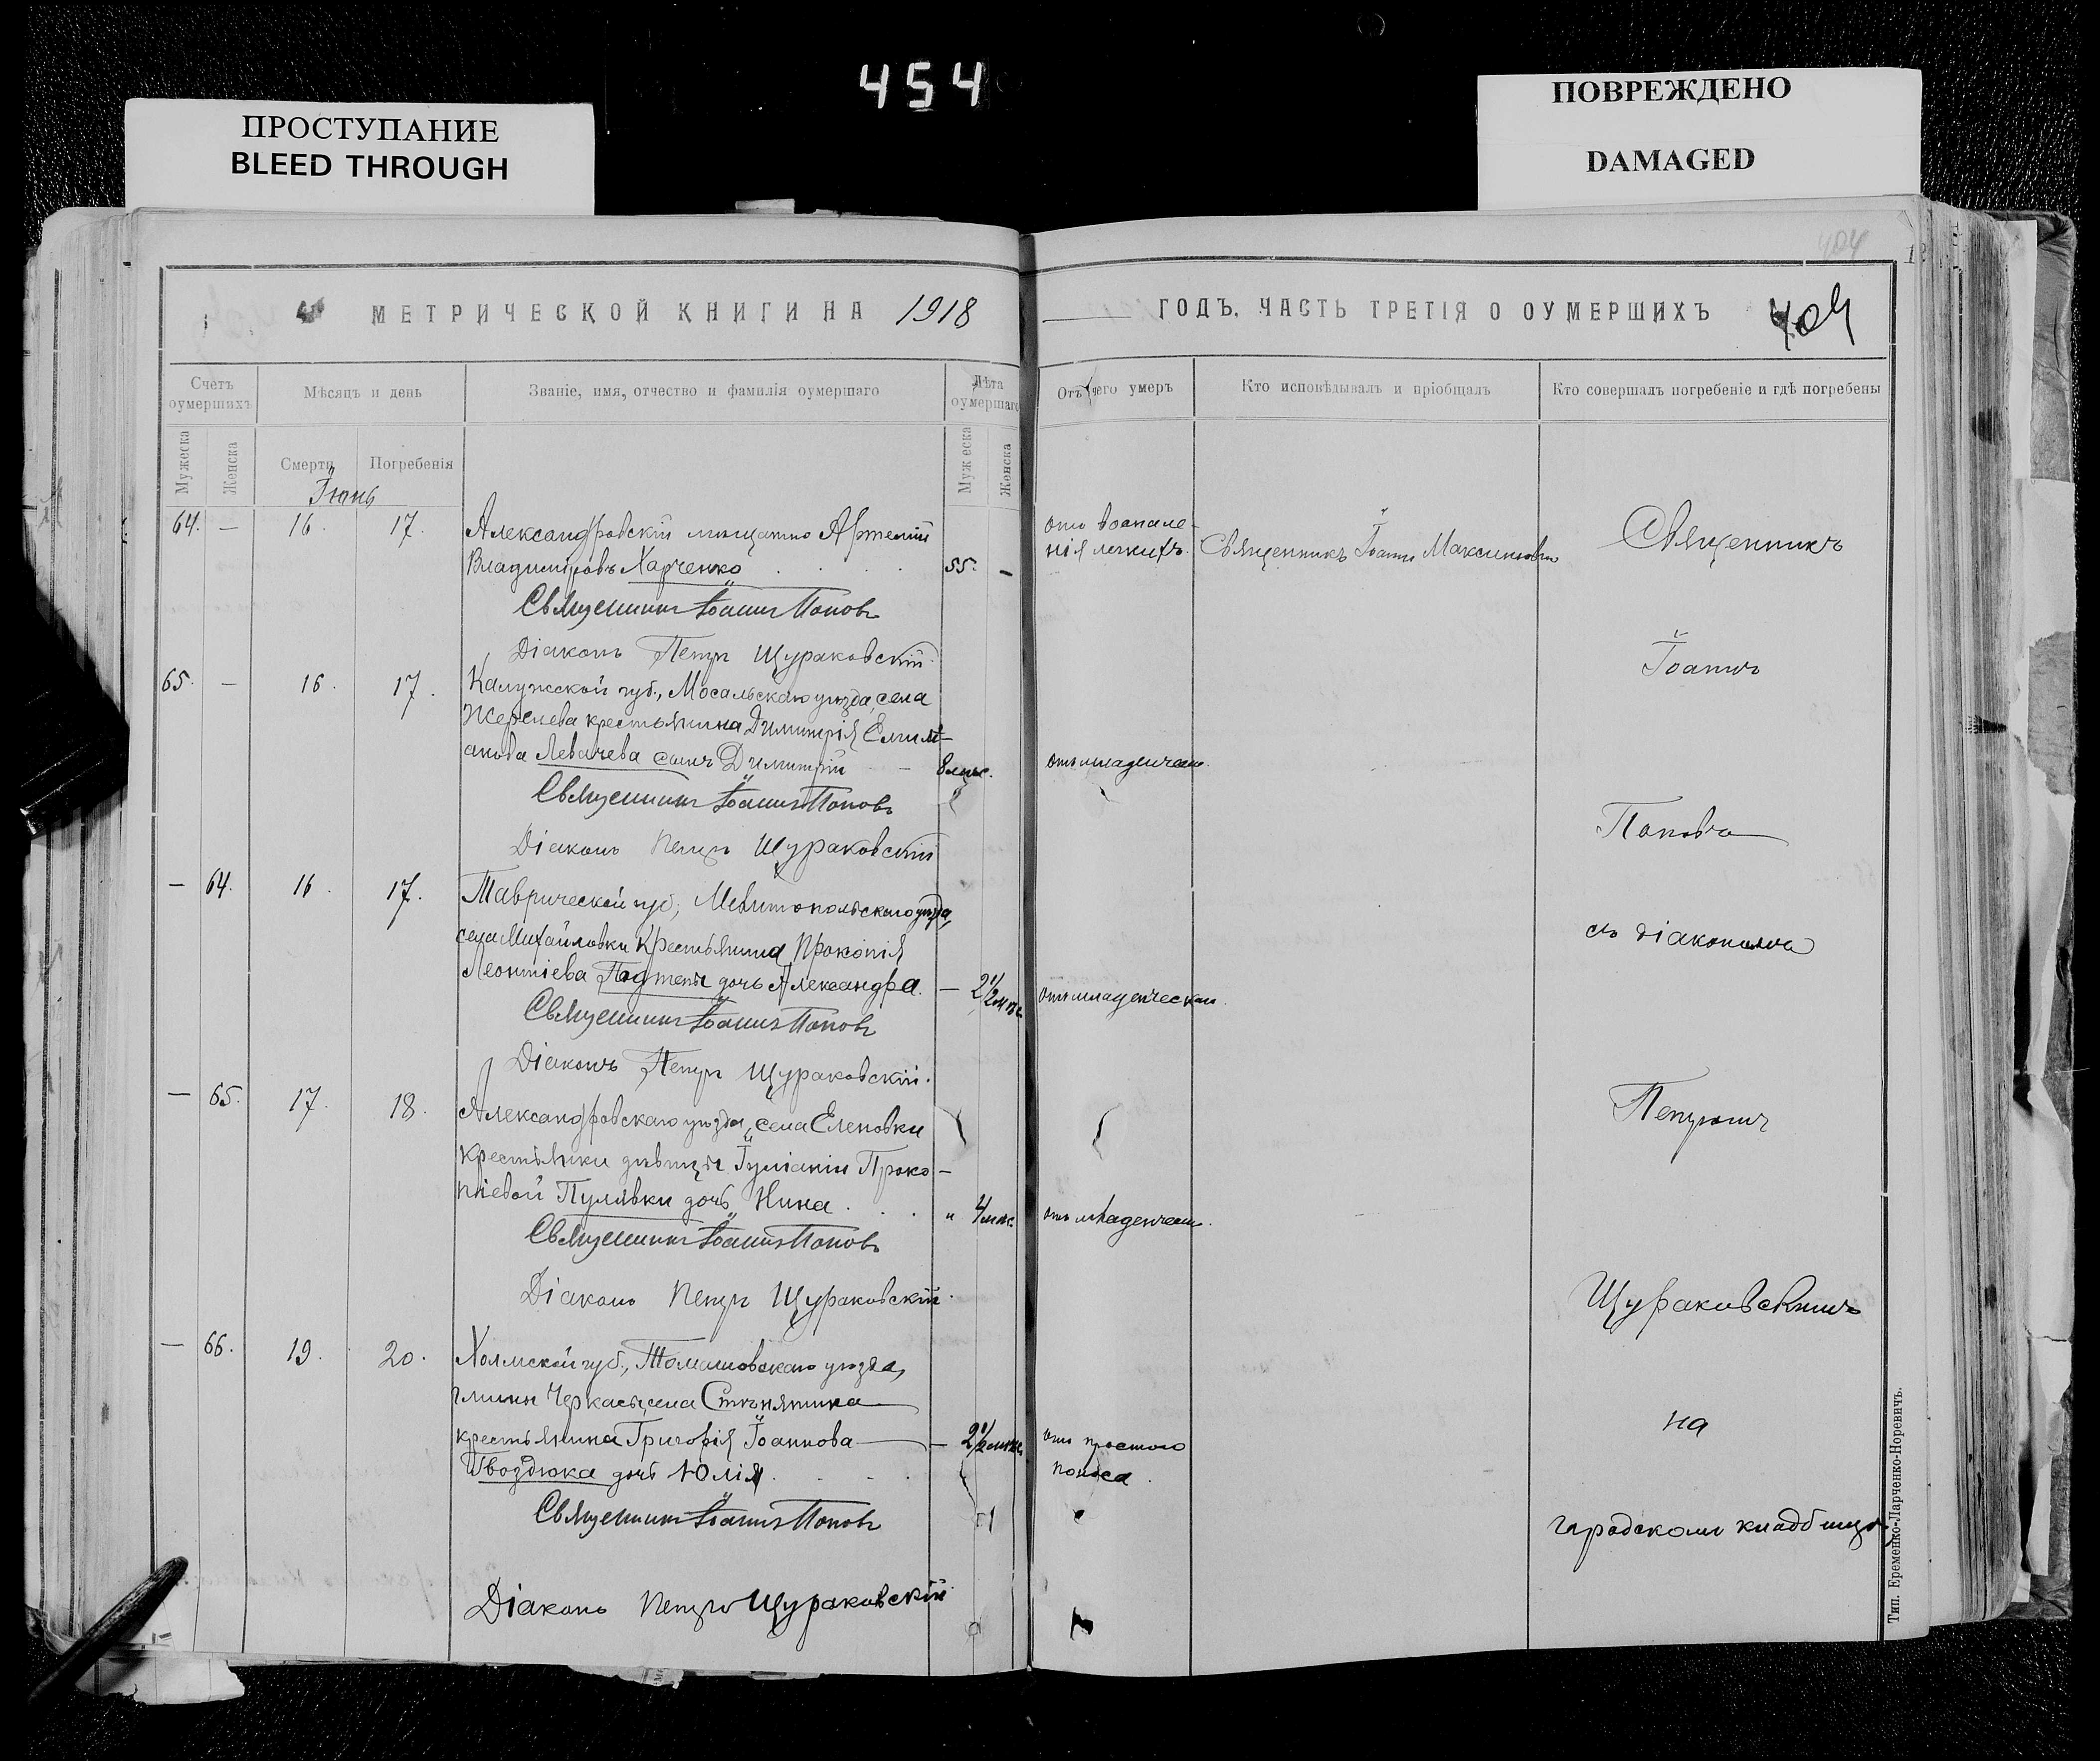 454
ПРОСТУПАНИЕ
BLEED THROUGH
ПОВРЕЖДЕНО
DAMAGED
404
МЕТРИЧЕСКОЙ КНИГИ НА 1918
ГОДЪ. ЧАСТЬ ТРЕТІЯ О ОУМЕРШИХЪ 404
Счетъ оумершихъ
Мѣсяцъ и день
Званіе, имя, отчество и фамилія оумершаго
Лѣта оумершаго
Отъ чего умеръ
Кто исповѣдывалъ и пріобщалъ
Кто совершалъ погребеніе и гдѣ погребены
Мужеска
Женска
Смерти
Погребенія
Мужеска
Женска
Іюнь
64. — 16. 17.
Александровскій мѣщанинъ Артемій
Владиміровъ Харченко 55. —
отъ воспале-
нія легкихъ.
Священникъ Іоаннъ Максимовъ
Священникъ Іоаннъ Поповъ
Діаконъ Петръ Щураковскій.
65. — 16. 17.
Калужской губ., Мосальскаго уѣзда, села
крестьянина Димитрія Емили-
анова Левачева сынъ Димитрій — 8 мѣс.
отъ младенческ.
Священникъ Іоаннъ Поповъ
Діаконъ Петръ Щураковскій
— 64. 16. 17.
Таврической губ., Мелитопольскаго уѣзда,
села Михайловки крестьянина Прокопія
Леонтіева дочь Александра. — 2 1/2 мѣс.
отъ младенческой.
Священникъ Іоаннъ Поповъ
Діаконъ Петръ Щураковскій.
— 65. 17. 18.
Александровскаго уѣзда, села Еленовки
крестьянки дѣвицы Іуліаніи Проко-
піевой Пулявки дочь Нина. „ 4 мѣс.
отъ младенческ.
Священникъ Іоаннъ Поповъ
Діаконъ Петръ Щураковскій.
— 66. 19. 20.
Холмской губ., Томашовскаго уѣзда,
гмины Черкасы, села Стѣнятина
крестьянина Григорія Іоаннова — 2 1/2 мѣс.
Гвоздюка дочь Юлія.
отъ простого
поноса.
Священникъ Іоаннъ Поповъ
Діаконъ Петръ Щураковскій
Священникъ
Іоаннъ
Поповъ
съ діакономъ
Петромъ
Щураковскимъ
на
городскомъ кладбищѣ.
Тип. Еременко-Ларченко-Норевичъ.